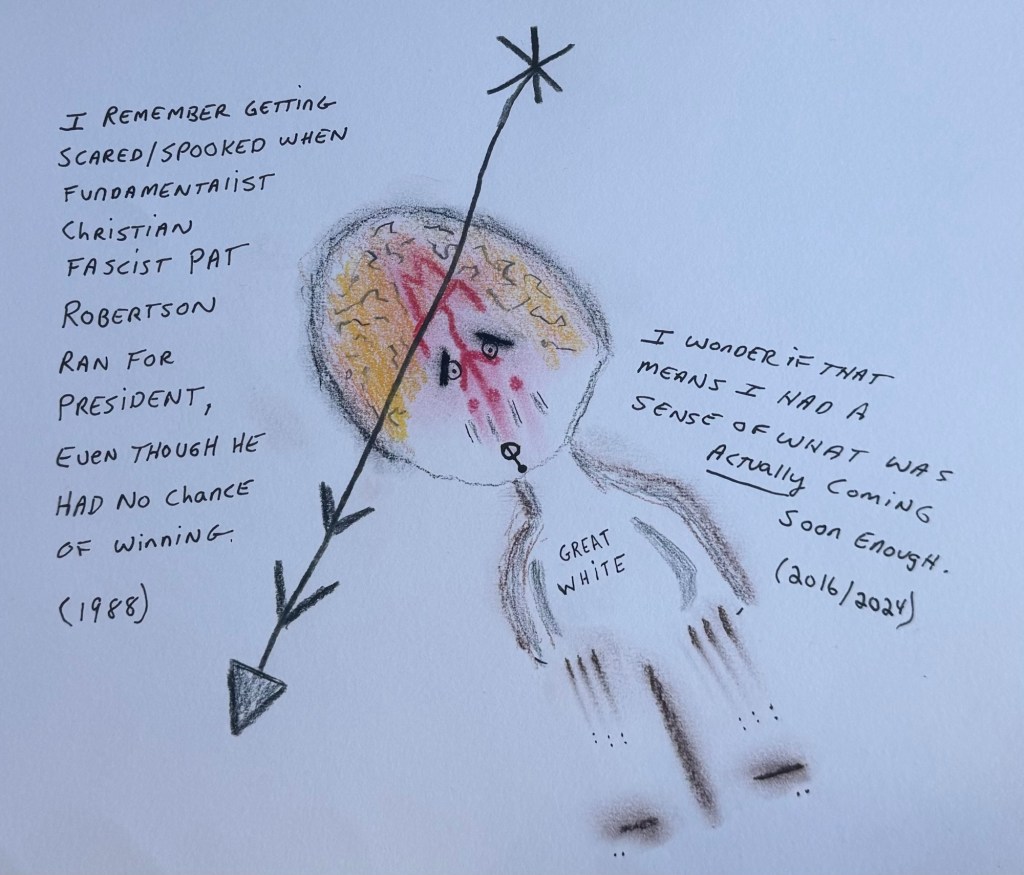 I REMEMBER GETTING
SCARED/SPOOKED WHEN
FUNDAMENTALIST
CHRISTIAN
FASCIST PAT
ROBERTSON
RAN FOR
PRESIDENT,
EVEN THOUGH HE
HAD NO CHANCE
OF WINNING.
(1988)
GREAT
WHITE
I WONDER IF THAT
MEANS I HAD A
SENSE OF WHAT WAS
ACTUALLY COMING
SOON ENOUGH.
(2016/2024)